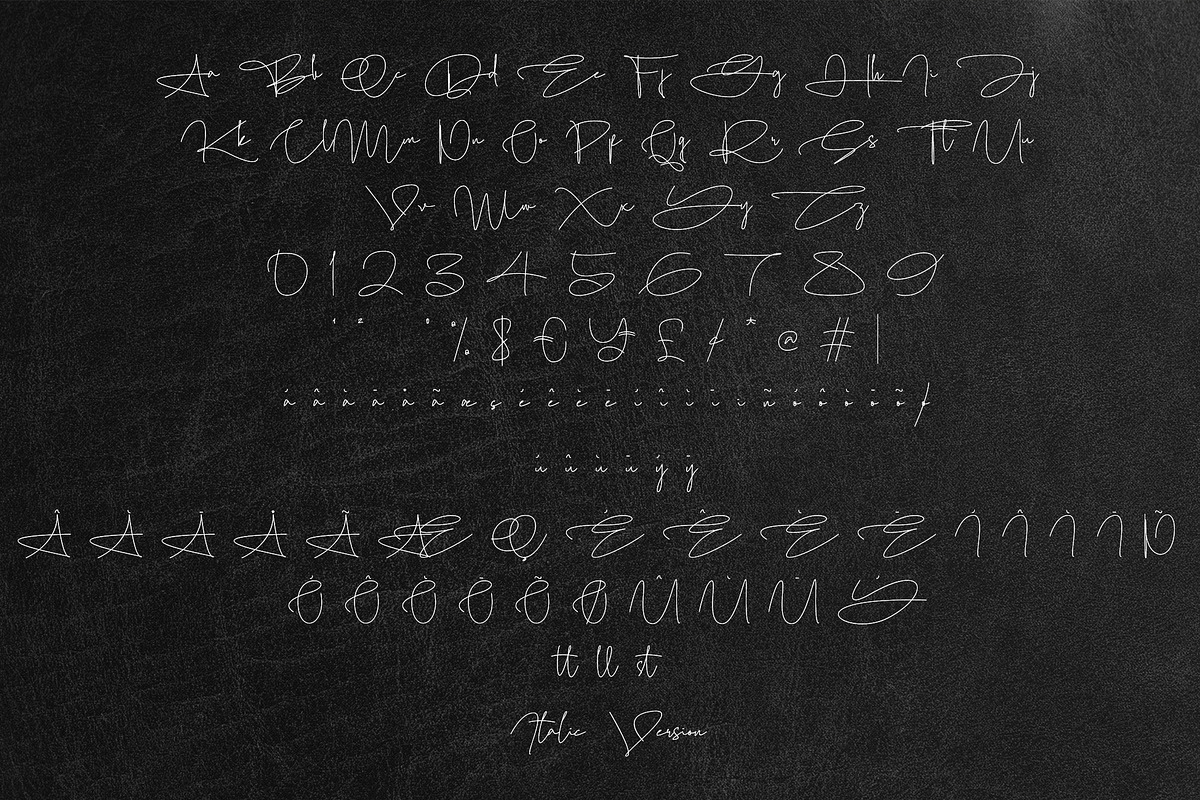 Aa Bb Cc Dd Ee Ff Gg Hh Ii Jj
Kk Ll Mm Nn Oo Pp Qq Rr Ss Tt Uu
Vv Ww Xx Yy Zz
0 1 2 3 4 5 6 7 8 9
¹ ² ° % $ € ¥ £ / * @ # |
á â à ä å ã æ ç é ê è ë í î ì ï ñ ó ô ò ö õ ø
ú û ù ü ý ÿ
Â À Ä Å Ã Æ Ç É Ê È Ë Í Î Ì Ï Ñ
Ó Ô Ò Ö Õ Ø Û Ù Ü Ý
tt ll st
Italic Version